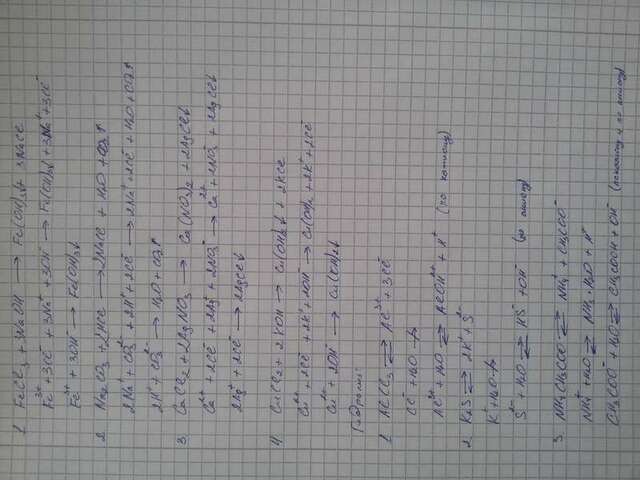 1. FeCl₃ + 3NaOH → Fe(OH)₃↓ + 3NaCl
Fe³⁺ + 3Cl⁻ + 3Na⁺ + 3OH⁻ → Fe(OH)₃↓ + 3Na⁺ + 3Cl⁻
Fe³⁺ + 3OH⁻ → Fe(OH)₃↓
2. Na₂CO₃ + 2HCl → 2NaCl + H₂O + CO₂↑
2Na⁺ + CO₃²⁻ + 2H⁺ + 2Cl⁻ → 2Na⁺ + 2Cl⁻ + H₂O + CO₂↑
2H⁺ + CO₃²⁻ → H₂O + CO₂↑
3. CaCl₂ + 2AgNO₃ → Ca(NO₃)₂ + 2AgCl↓
Ca²⁺ + 2Cl⁻ + 2Ag⁺ + 2NO₃⁻ → Ca²⁺ + 2NO₃⁻ + 2AgCl↓
2Ag⁺ + 2Cl⁻ → 2AgCl↓
4. CuCl₂ + 2KOH → Cu(OH)₂↓ + 2KCl
Cu²⁺ + 2Cl⁻ + 2K⁺ + 2OH⁻ → Cu(OH)₂ + 2K⁺ + 2Cl⁻
Cu²⁺ + 2OH⁻ → Cu(OH)₂↓
1. AlCl₃ ⇄ Al³⁺ + 3Cl⁻
Cl⁻ + H₂O ↛
Al³⁺ + H₂O ⇄ AlOH²⁺ + H⁺ (по катиону)
2. K₂S ⇄ 2K⁺ + S²⁻
K⁺ + H₂O ↛
S²⁻ + H₂O ⇄ HS⁻ + OH⁻ (по аниону)
3. NH₄CH₃COO ⇄ NH₄⁺ + CH₃COO⁻
NH₄⁺ + H₂O ⇄ NH₃·H₂O + H⁺
CH₃COO⁻ + H₂O ⇄ CH₃COOH + OH⁻ (по катиону и по аниону)